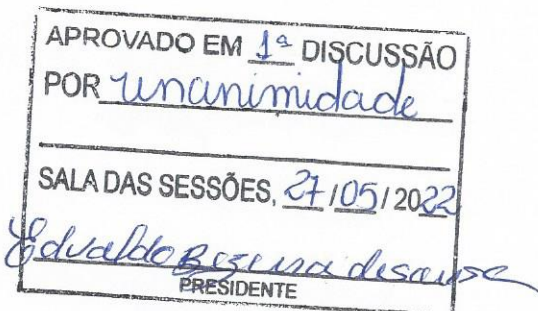 APROVADO EM 1ª DISCUSSÃO
POR unanimidade
SALA DAS SESSÕES, 27/05/2022
Edvaldo Bezerra de Souza
PRESIDENTE